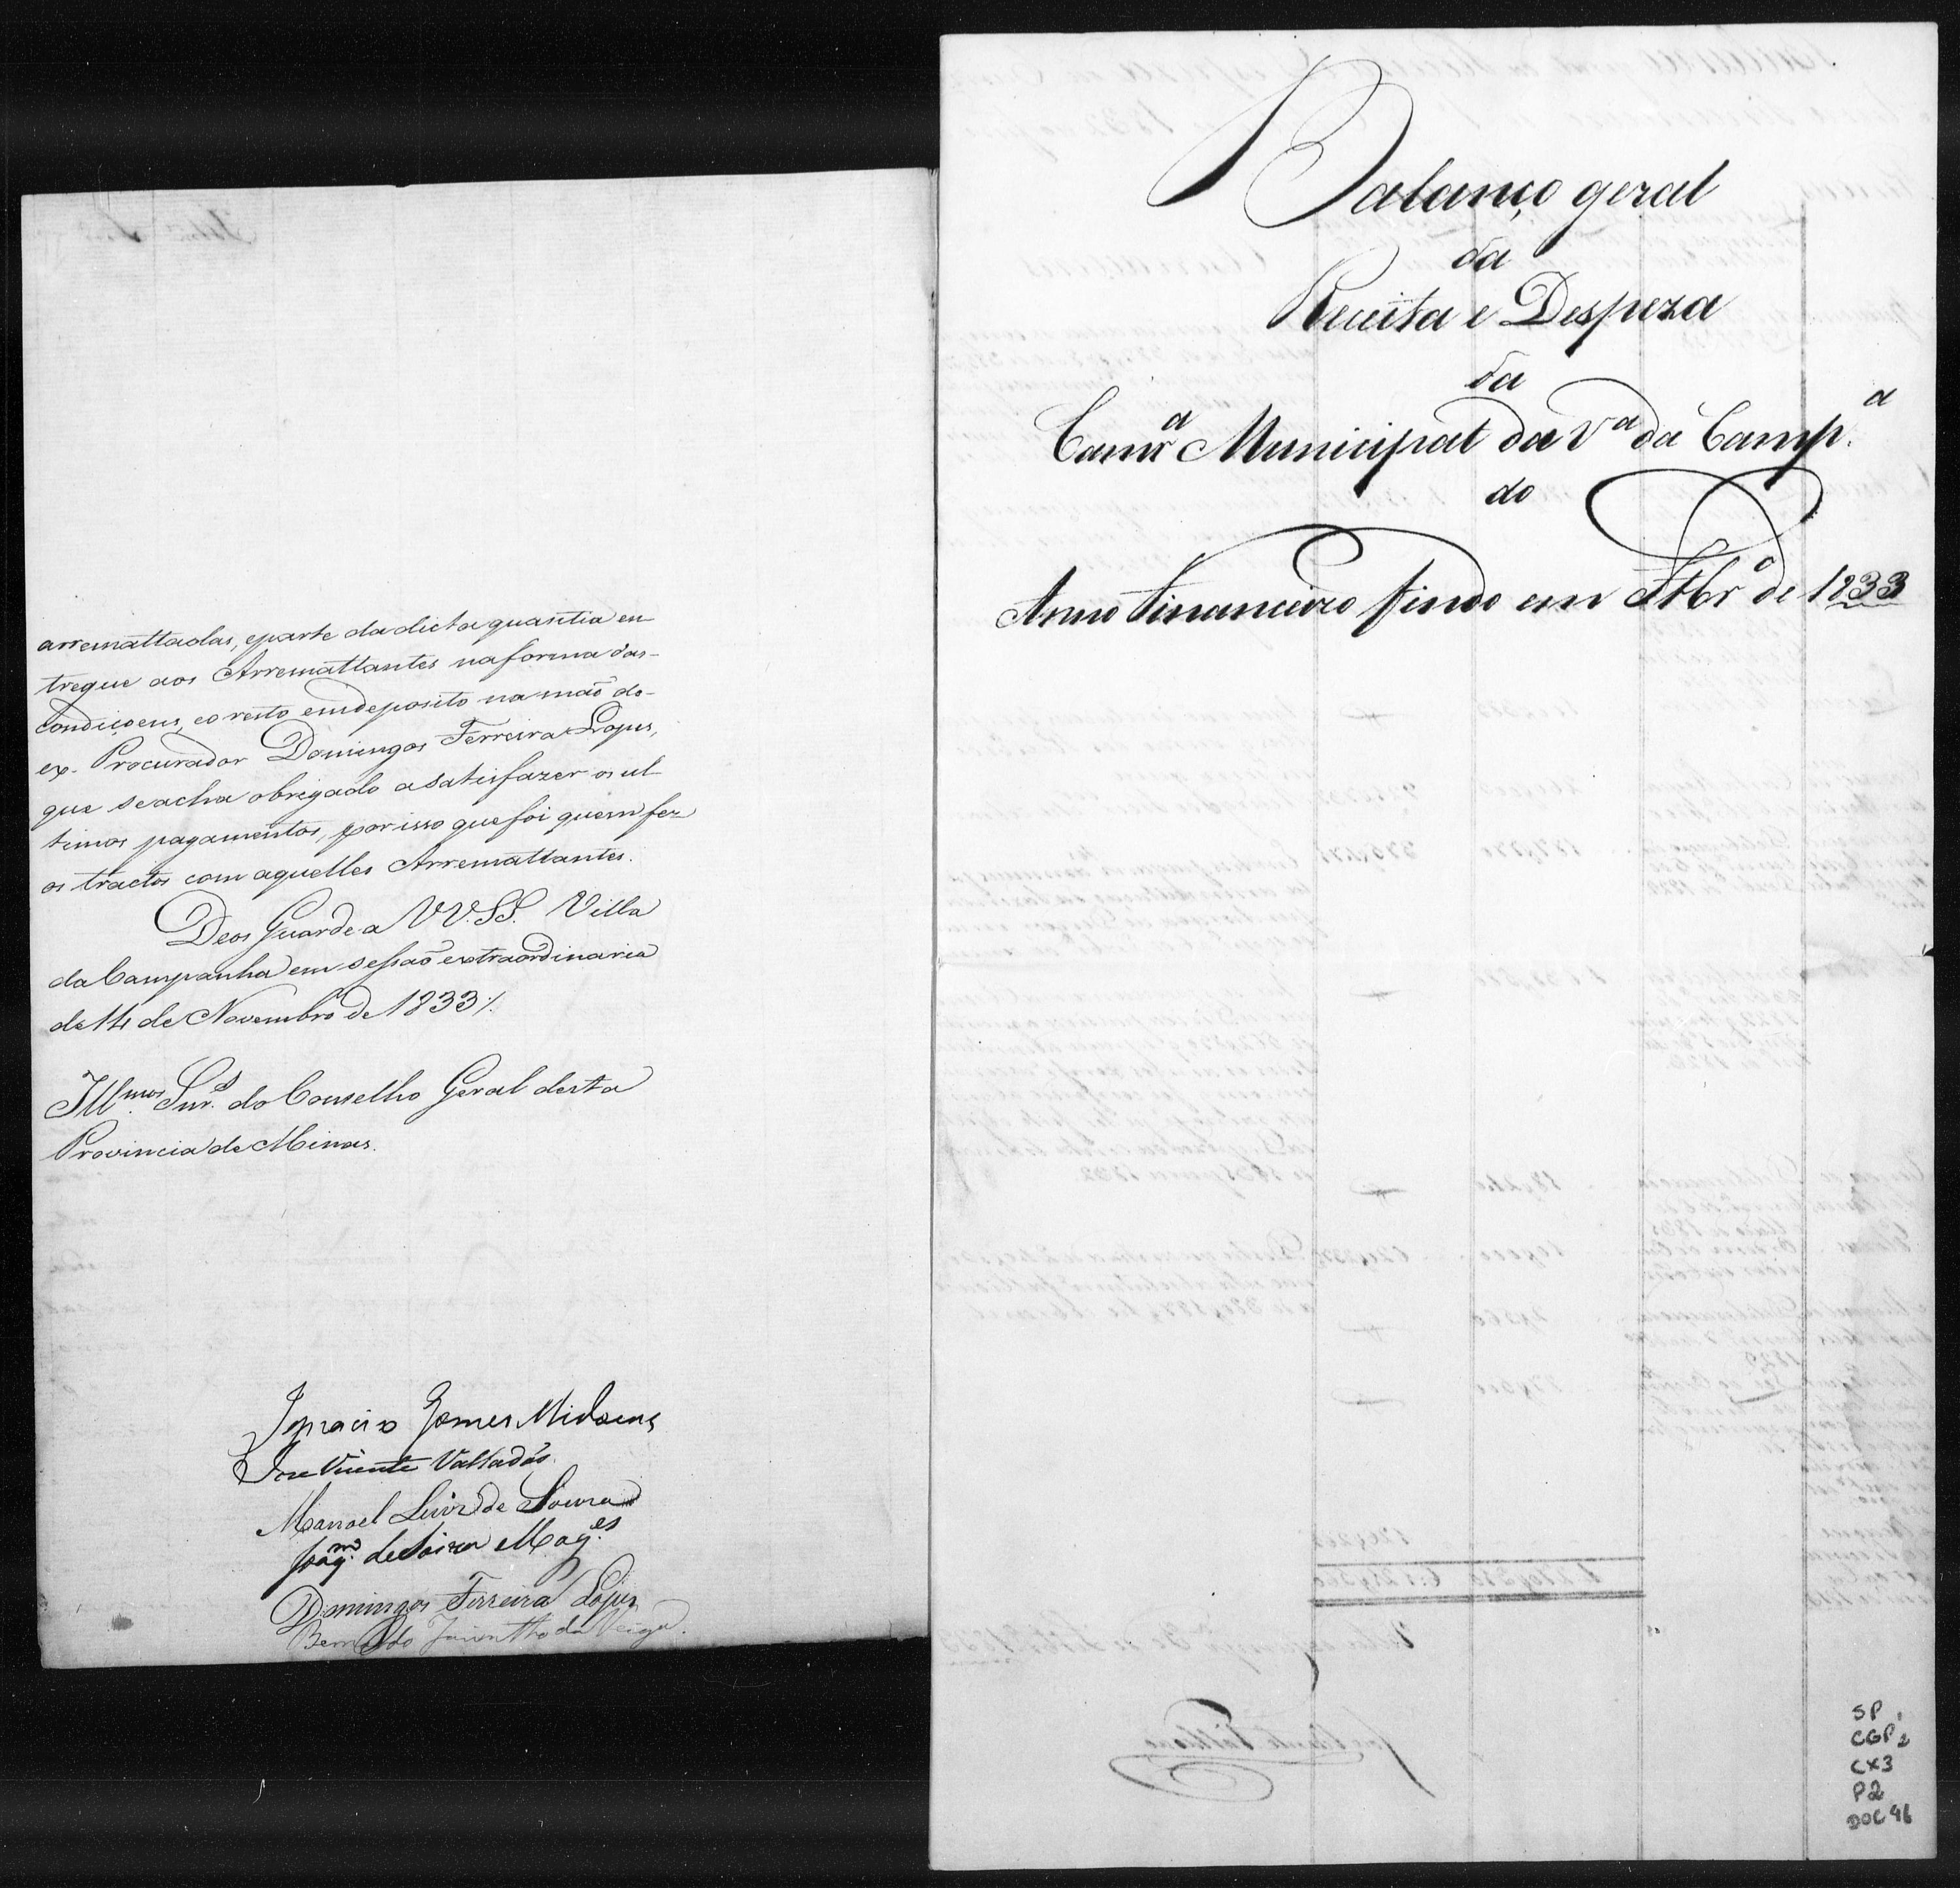 arremattadas, eparte da dicta quantia en-
tregue aos Arremattantes na forma das-
Condiçoens, eo resto em deposito na maõ do-
ex- Procurador Domingos Ferreira Lopes,
que se acha obrigado a satisfazer os ul-
timos pagamentos, por isso que foi quem fez
os tractos com aquelles Arremattantes.
Deos Guarde a VV.SS. Villa
da Campanha em sessaõ extraordinaria
de 14 de Novembro de 1833 ./.
Illmos. Snrs. do Conselho Geral desta
Provincia de Minas.
Ignacio Gomes Midoens
Joze Vicente Valladaõ
Manoel Luiz de Souza
Joaqm. de Souza Mag.es
Domingos Ferreira Lopes
Bernardo Jacintho da Veiga.
Balanço geral
da
Receita e Despeza
da
Camrª Municipal da Vª da Camp.ª
do
Anno Financeiro findo em Stbrº de 1833
SP 1
CGP 2
CX3
P2
DOC 46